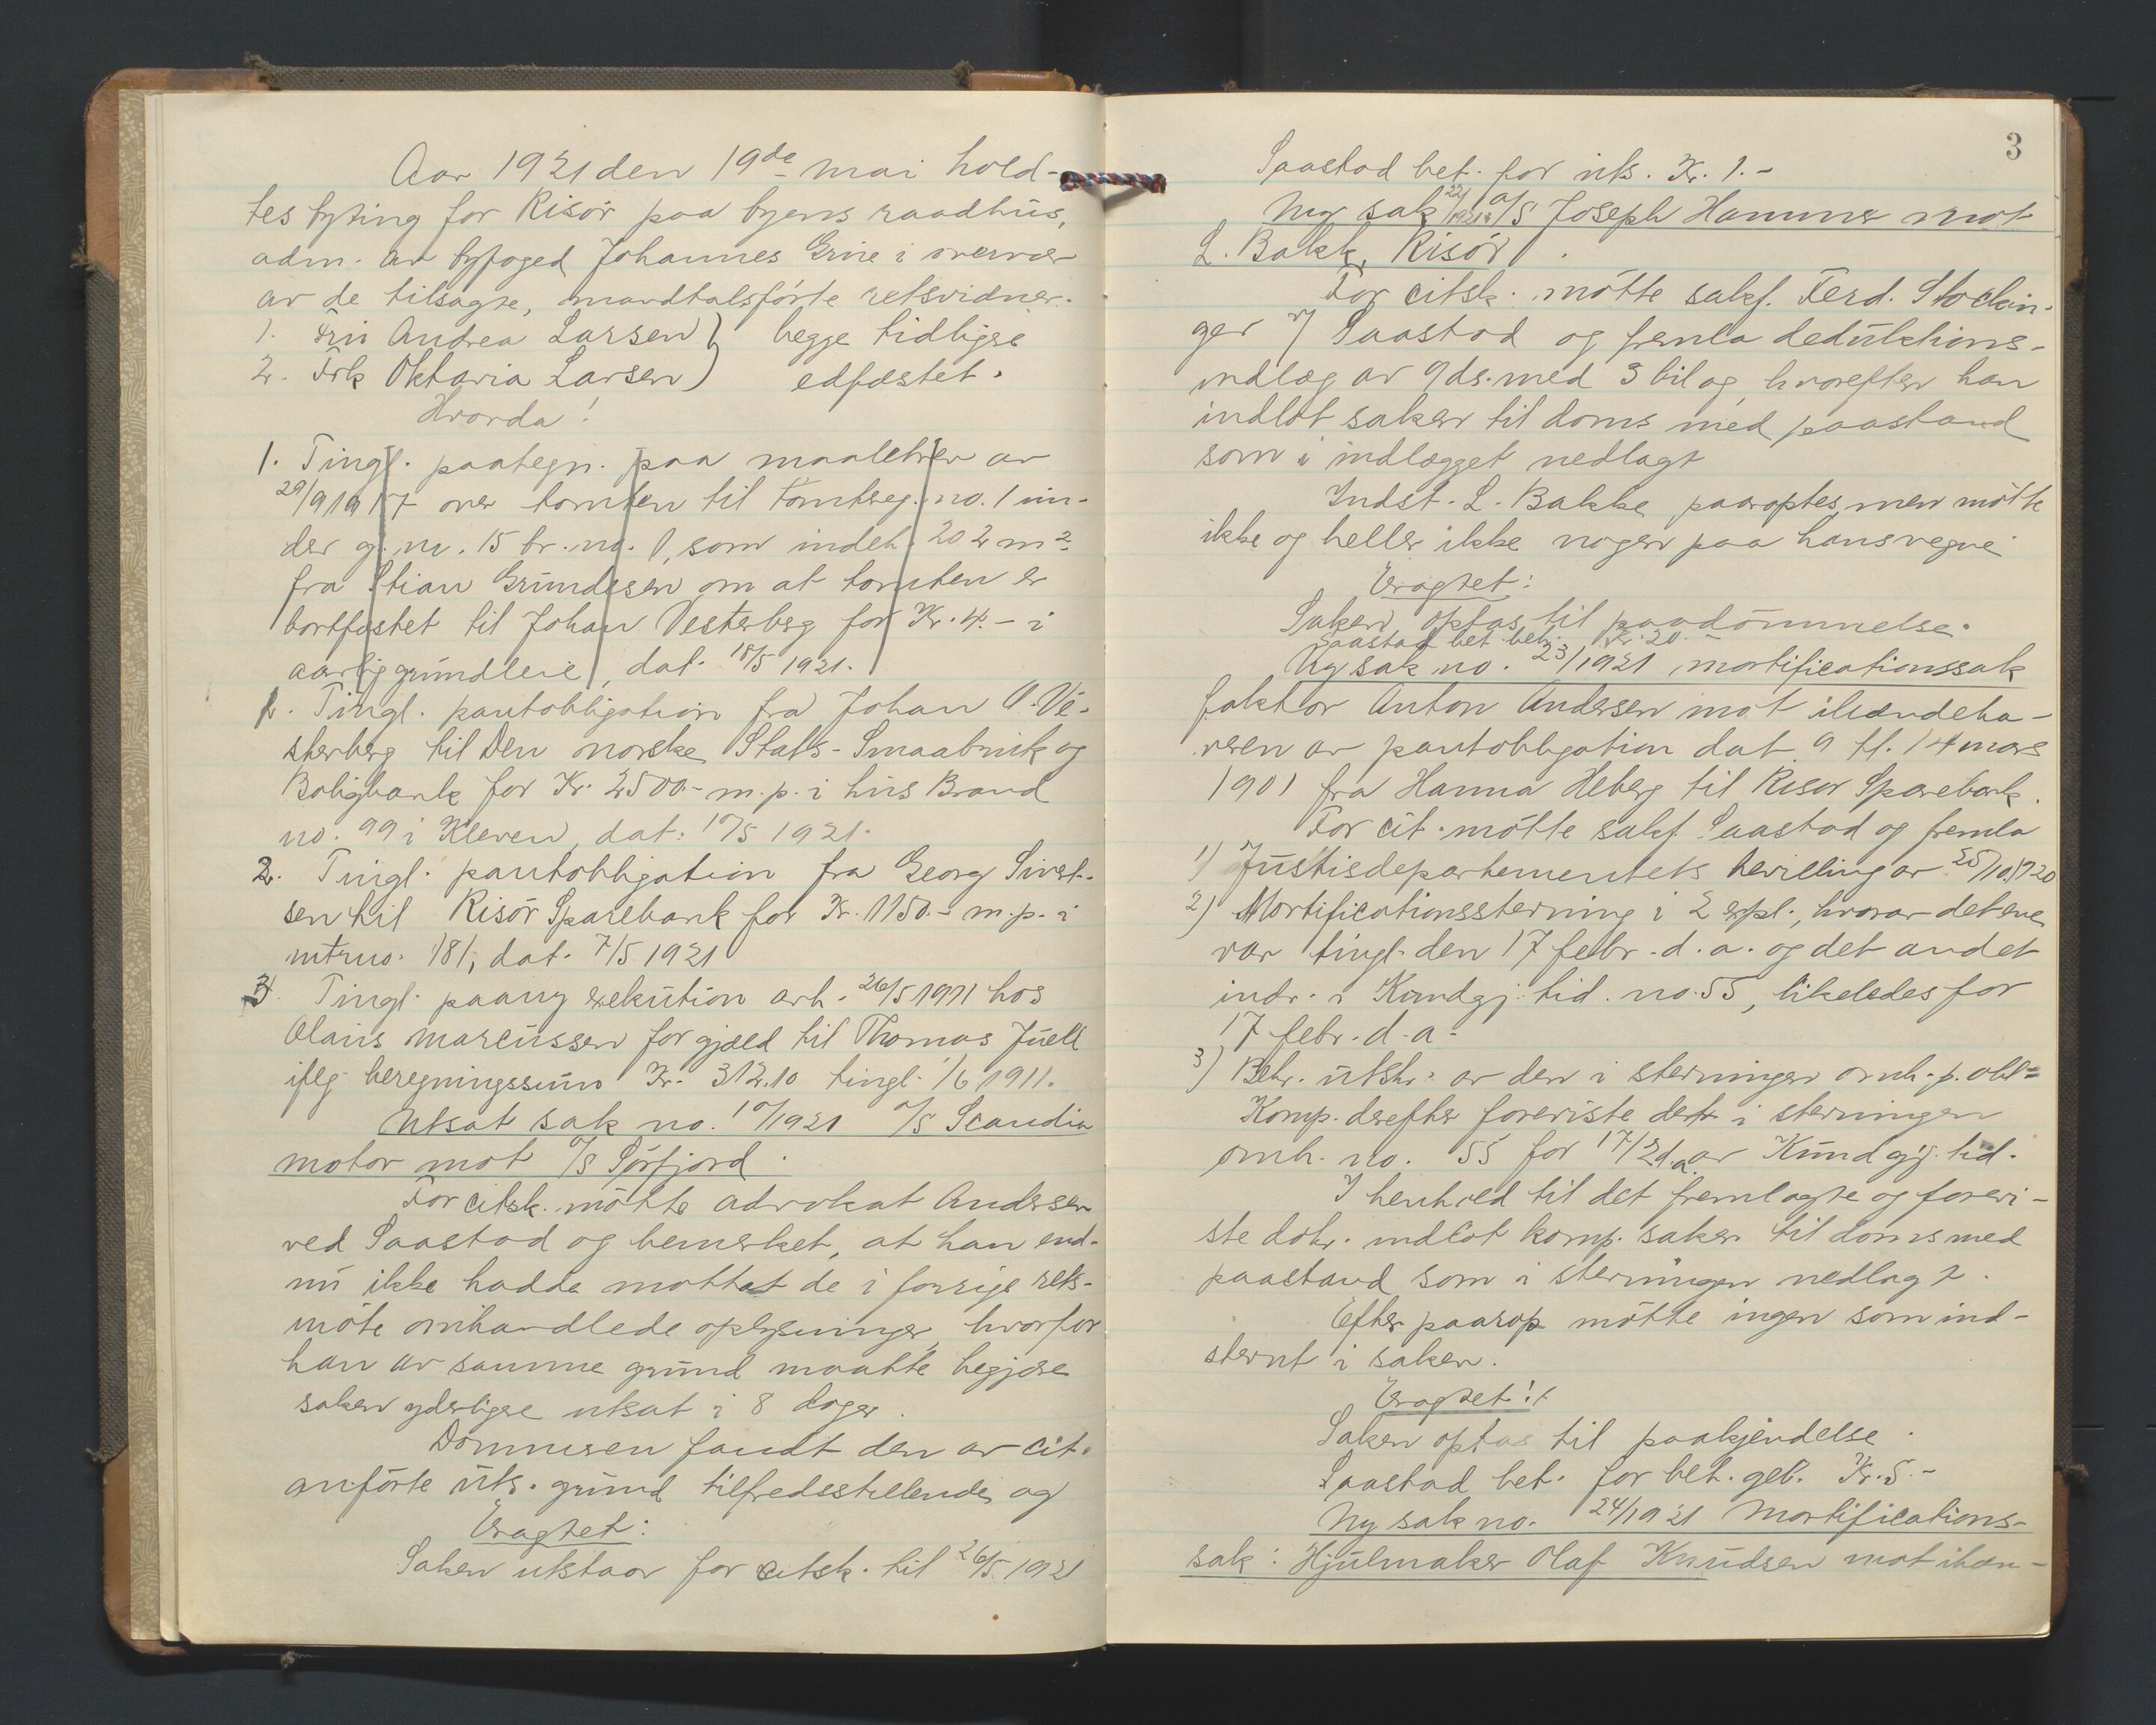 Aar 1921 den 19de mai hold-
tes byting for Risör paa byens raadhus,
adm. av byfoged Johannes Grue i overvær
av de tilsagte, mandtalsförte retsvidner.
1. Fru Andrea Larsen) begge tidligere
2. Frk Oktavia Larsen) edfæstet.
Hvorda!
1. Tingl. paategn. paa maalebrev av
29/9 1917 over tomten til tomtreg. no. 1 un-
der g. nr. 15 br. no. 1, som indeh. 202 m2
fra Stian Grundesen om at tomten er
bortfæstet til Johan Vesterberg for Kr. 4.- i
aarlig grundleie, dat. 18/5 1921.
1. Tingl. pantobligation fra Johan A. Ve-
sterberg til Den norske Stats-Smaabruk og
Boligbank for Kr. 2500.- m. p. i hus Brand
no. 99 i Kleven, dat. 10/5 1921.
2. Tingl. pantobligation fra Georg Sivert-
sen til Risör Sparebank for Kr. 1150.- m. p. i
mtrno. 181, dat. 7/5 1921
3. Tingl. paany exekution avh. 26/5 1911 hos
Olaus Marcussen for gjæld til Thomas Juell
iflg beregningssum Kr. 312.10 tingl. 1/6 1911.
Utsat sak no. 10/1921 A/S Scandia
motor mot A/S Sörfjord.
For citsk. mötte advokat Andersen
ved Saastad og bemerket, at han end-
nu ikke hadde mottat de i forrige rets-
möte omhandlede oplysninger, hvorfor
han av samme grund maatte begjære
saken yderligere utsat i 8 dager.
Dommeren fandt den av cit.
anförte uts. grund tilfredsstillende, og
Eragtet:
Saken utstaar for citsk. til 26/5 1921
3
Saastad bet. for uts. Kr. 1.-
Ny sak 22/1921 A/S Joseph Hammer mot
L. Bakk, Risör.
For citsk. mötte sakf. Ferd. Stockin-
ger v/ Saastad og fremla deduktions-
indlæg av 9 ds. med 3 bilag, hvorefter han
indlot saken til doms med paastand
som i indlægget nedlagt
Indst. L. Bakke paaroptes, men mötte
ikke og heller ikke nogen paa hans vegne
Eragtet:
Saken optas til paadömmelse.
Saastad bet. beh. Kr. 20.-
Ny sak no. 23/1921, mortificationssak
faktor Anton Andersen mot ihændeha-
veren av pantobligation dat. 9 tl. 14 mars
1901 fra Hanna Heberg til Risør Sparebank.
For cit. mötte sakf. Saastad og fremla
1) Justisdepartementets bevilling av 25/10 1920
2) Mortificationsstevning i 2 expl., hvorav det ene
var tingl. den 17 febr. d. a. og det andet
indr. i Kundgj. tid. no. 55, likeledes for
17 febr. d. a.
3) Bekr. utskr. av den i stevningen omh. p. obl.
Komp. derefter foreviste det i stevningen
omh. no. 55 for 17/2 d. a. av Kundgj. tid.
I henhold til det fremlagte og forevi-
ste dok. indlot komp. saken til doms med
paastand som i stevningen nedlagt.
Efter paarop mötte ingen som ind-
stevnt i saken.
Eragtet:
Saken optas til paakjendelse.
Saastad bet. for bet. geb. Kr. 5.-
Ny sak no. 24/1921 Mortifications-
sak: Hjulmaker Olaf Knudsen mot ihæn-